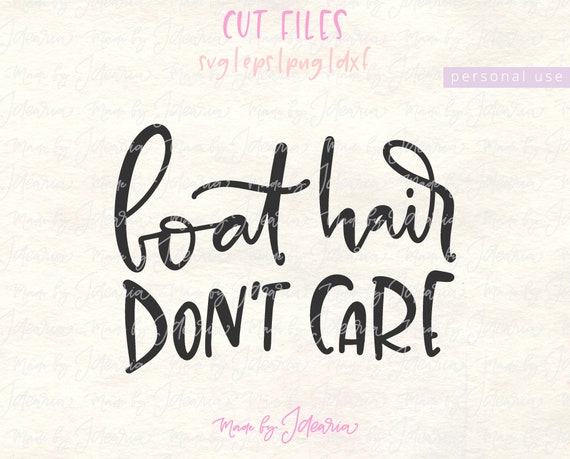 CUT FILES
svg|eps|png|dxf
personal use
boat hair
DON'T CARE
Made by Idearia